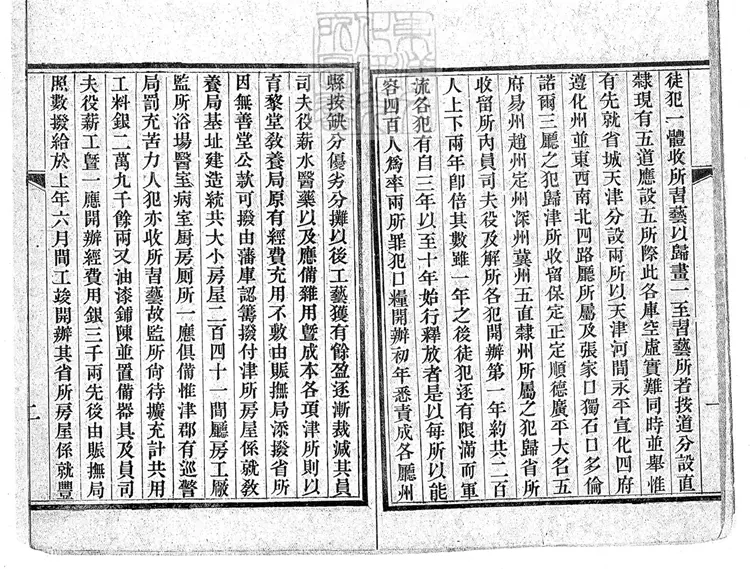 徒犯一體收所習藝以歸畫一至習藝所若按道分設直
隸現有五道應設五所際此各庫空虛實難同時並舉惟
有先就省城天津分設兩所以天津河間永平宣化四府
遵化州並東西南北四路廳所屬及張家口獨石口多倫
諾爾三廳之犯歸津所收留保定正定順德廣平大名五
府易州趙州定州深州冀州五直隸州所屬之犯歸省所
收留所內員司夫役及解所各犯開辦第一年約共二百
人上下兩年卽倍其數雖一年之後徒犯逐有限滿而軍
流各犯有自三年以至十年始行釋放者是以每所以能
容四百人爲率兩所罪犯口糧開辦初年悉責成各廳州
縣按缺分優劣分攤以後工藝獲有餘盈逐漸裁減其員
司夫役薪水醫藥以及應備雜用曁成本各項津所則以
育黎堂敎養局原有經費充用不敷由賑撫局添撥省所
因無善堂公款可撥由藩庫認籌撥付津所房屋係就敎
養局基址建造統共大小房屋二百四十一間廳房工厰
監所浴場醫室病室厨房厠所一應俱備惟津郡有巡警
局罰充苦力人犯亦收所習藝故監所尙待擴充計共用
工料銀二萬九千餘兩又油漆鋪陳並置備器具及員司
夫役薪工曁一應開辦經費用銀三千兩先後由賑撫局
照數撥給於上年六月間工竣開辦其省所房屋係就豐
一
二